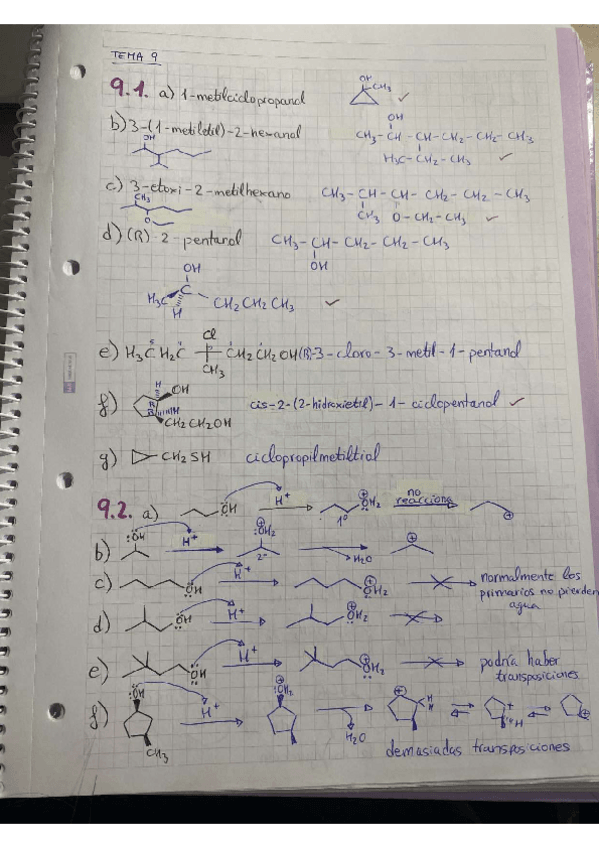 TEMA 9
9.1. a) 1-metilciclopropanol
OH
CH3
b) 3-(1-metiletil)-2-hexanol
OH
OH
CH3-CH-CH-CH2-CH2-CH3
H3C-CH2-CH3
c) 3-etoxi-2-metilhexano
CH3-CH-CH-CH2-CH2-CH3
CH3 O-CH2-CH3
CH3
O
d) (R)-2-pentanol
CH3-CH-CH2-CH2-CH3
OH
OH
H3C C CH2CH2CH3
H
e) H3C H2C Cl CH2CH2OH (R)-3-cloro-3-metil-1-pentanol
CH3
f) H OH
R
R H
CH2CH2OH
cis-2-(2-hidroxietil)-1-ciclopentanol
g) CH2SH ciclopropilmetiltiol
9.2. a) OH H+ OH2 no reacciona
1º
b) OH H+ OH2 H2O
2º
c) OH H+ OH2 normalmente los
primarios no pierden
agua
d) OH H+ OH2
e) OH H+ OH2 podría haber
transposiciones
f) OH H+ OH2 H2O H H H
CH3
demasiadas transposiciones